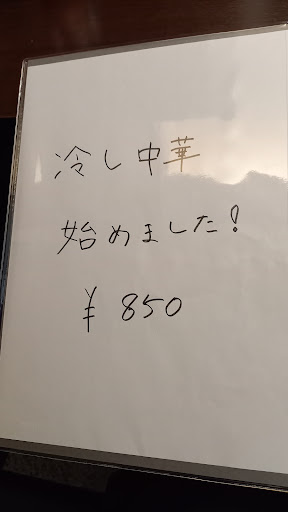 冷し中華
始めました!
¥850